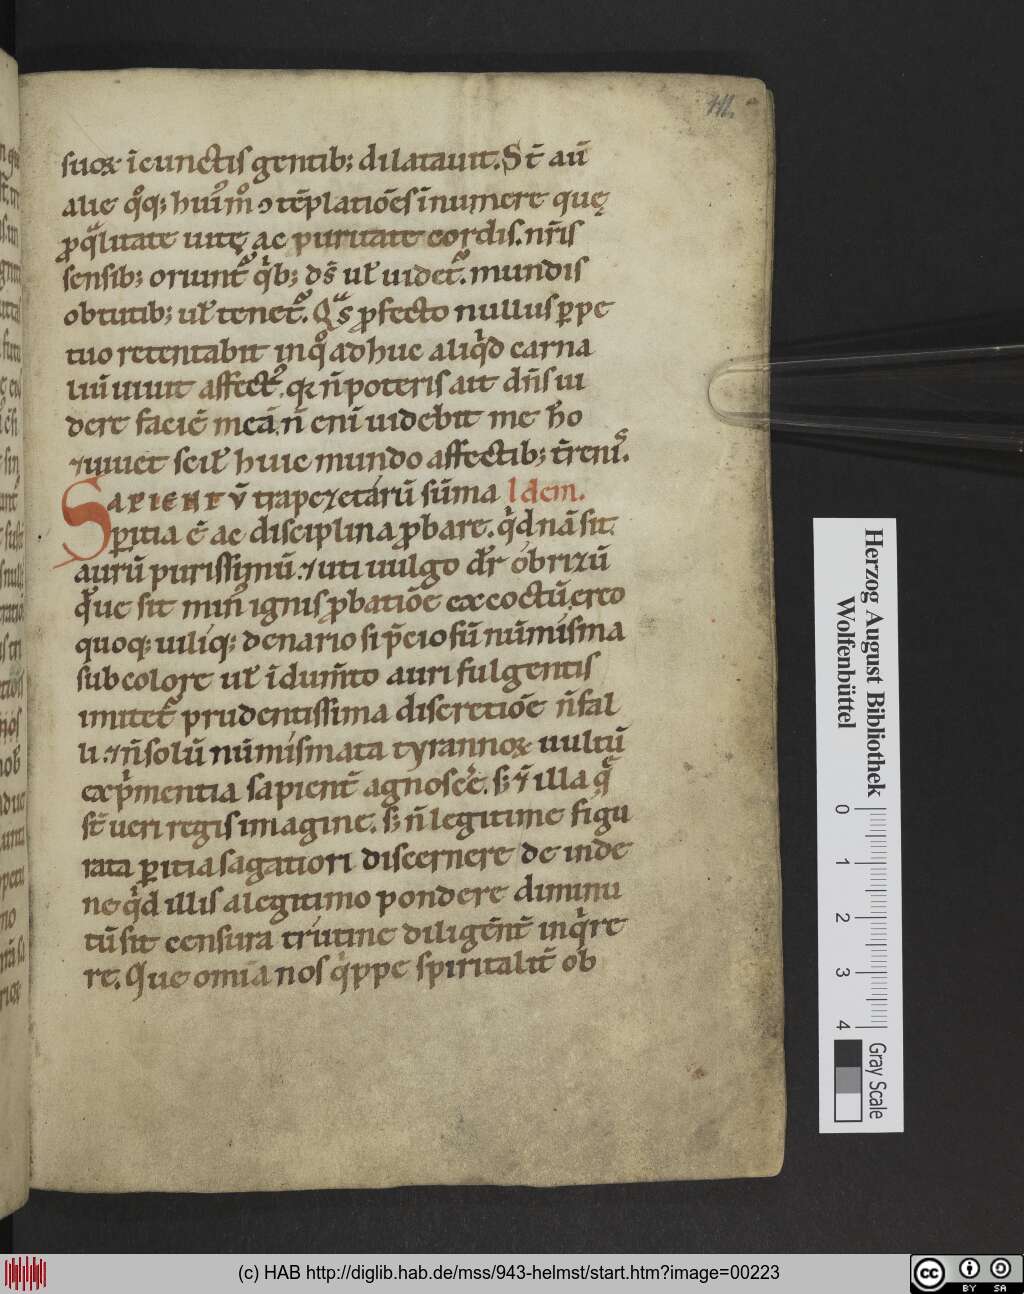 111.
suoꝝ ĩcunctis gentib; dilatauit. St̃ aũ
alie qͦq; huiͥmͦ ɔtẽplatiões ĩnumere quę
ꝓqͣlitate uitę ac puritate cordis. nr̃is
sensib; oriunt᷑ qͥb; dš ul̃ uidet᷑. mundis
obtutib; ul̃ tenet᷑. Qͣs ꝓfecto nullus ꝑpe
tuo retentabit in qͦ adhuc aliqͥd carna
liũ uiuit affectꝰ. qꝛ ñ poteris ait dñs ui
dere faciẽ meã. ñ enĩ uidebit me h̃o
⁊ uiuet scil̃ huic mundo affectib; t̃renis.
SAPIENTŨ trapezetárũ sũma Idem.
ꝑitia ẽ ac disciplina ꝓbare. qͥd nã sit
aurũ purissimũ. ⁊ uti uulgo dr̃ óbrizũ
qͩue sit min̾ ignis ꝓbatiõe excoctũ. ereo
quoq; uilíq; denario si p̃cioſũ nũmisma
sub colore ul̃ ĩdum̃to auri fulgentis
imitet᷑ prudentissima discretiõe ñ fal
li. ⁊ ñ solũ nũmismata tyrannoꝝ uultũ
exp̃mentia sapient̃ agnoscẽ. s; ⁊ illa q̨ͣ
st̃ ueri regis imagine. s; ñ legitime figu
rata ꝑitia sagatiori discernere de inde
ne qͥd illis a legitimo pondere diminu
tũ sit censura trútine diligẽnt̃ inqͥre
re. Que omĩa nos qͥppe spiritalit̃ ob
Herzog August Bibliothek
Wolfenbüttel
0 1 2 3 4
Gray Scale
(c) HAB http://diglib.hab.de/mss/943-helmst/start.htm?image=00223
cc BY SA